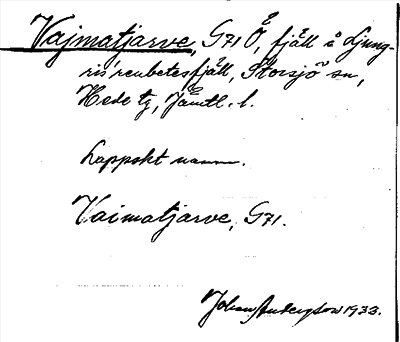 Vajmatjarve, G71 Ö, fjäll å Ljung-
ris' renbetesfjäll, Storsjö sn,
Hede tg, Jämtl. l.
Lappskt namn.
Vaimatjarve, G71.
Johan Andersson 1933.